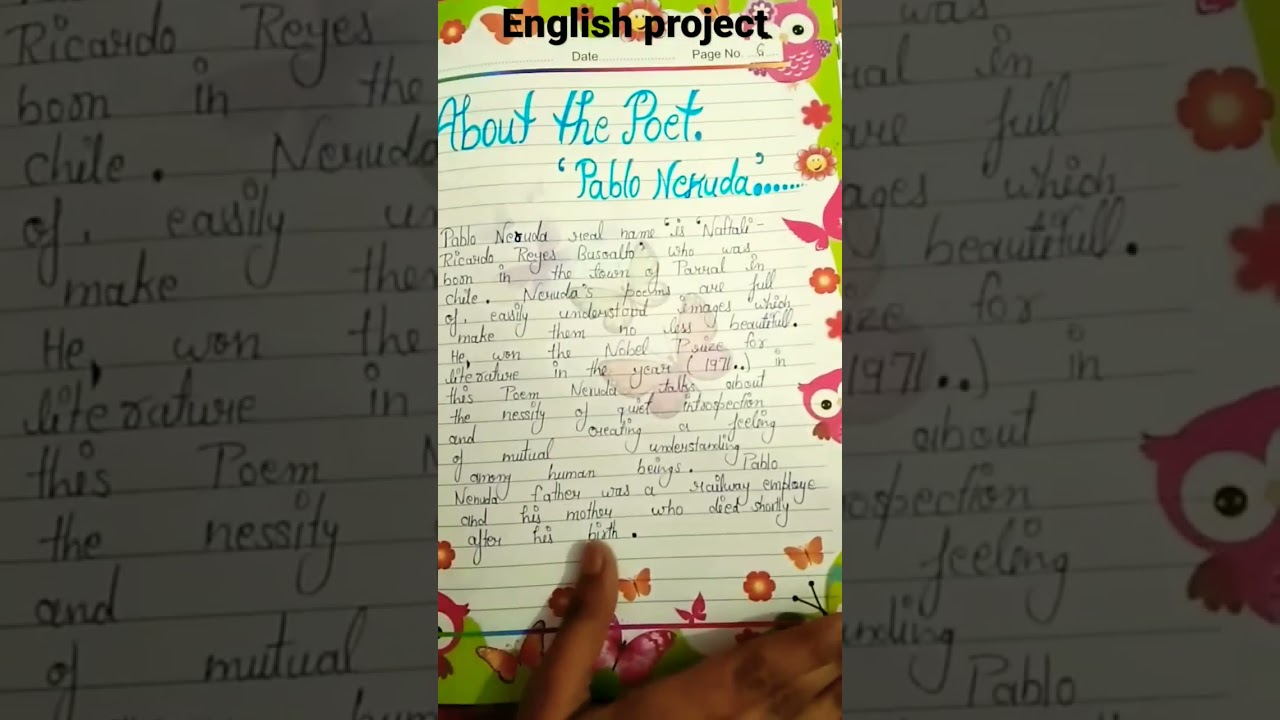 English project
Date
Page No. 6
About the Poet.
'Pablo Neruda'......
Pablo Neruda real name is 'Naftali-
Ricardo Reyes Busoalto' who was
boon in the town of Parral in
chile. Neruda's poems are full
of, easily understood images which
make them no less beautifull.
He, won the Nobel Prize for
literature in the year (1971..) in
this Poem Neruda talks about
the nessity of quiet introspection
and creating a feeling
of mutual understanding
among human beings. Pablo
Neruda father was a railway employe
and his mother who died shortly
after his birth.